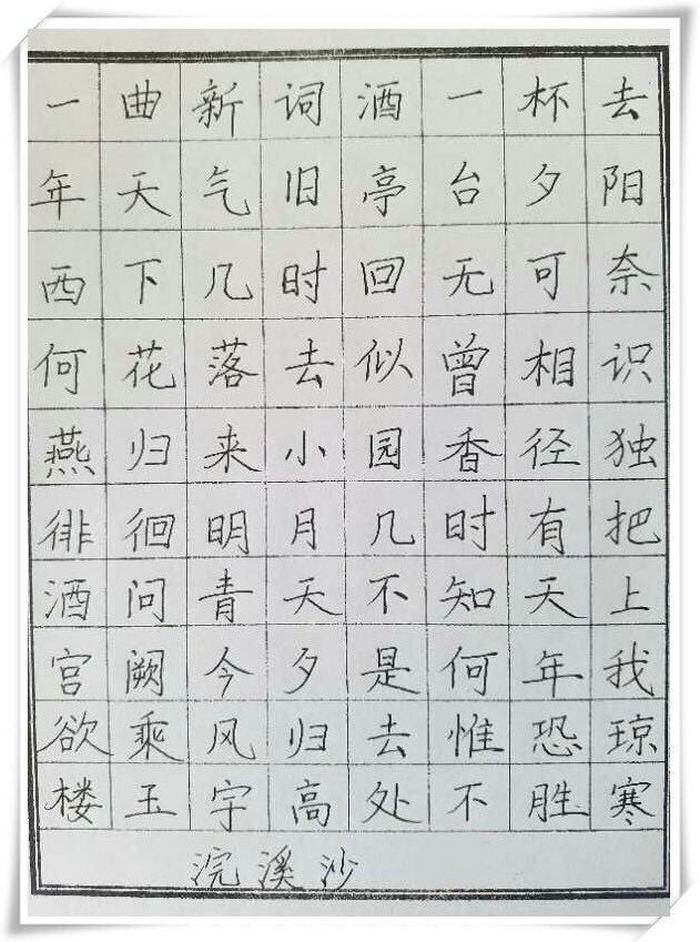 一曲新词酒一杯去
年天气旧亭台夕阳
西下几时回无可奈
何花落去似曾相识
燕归来小园香径独
徘徊明月几时有把
酒问青天不知天上
宫阙今夕是何年我
欲乘风归去惟恐琼
楼玉宇高处不胜寒
浣溪沙